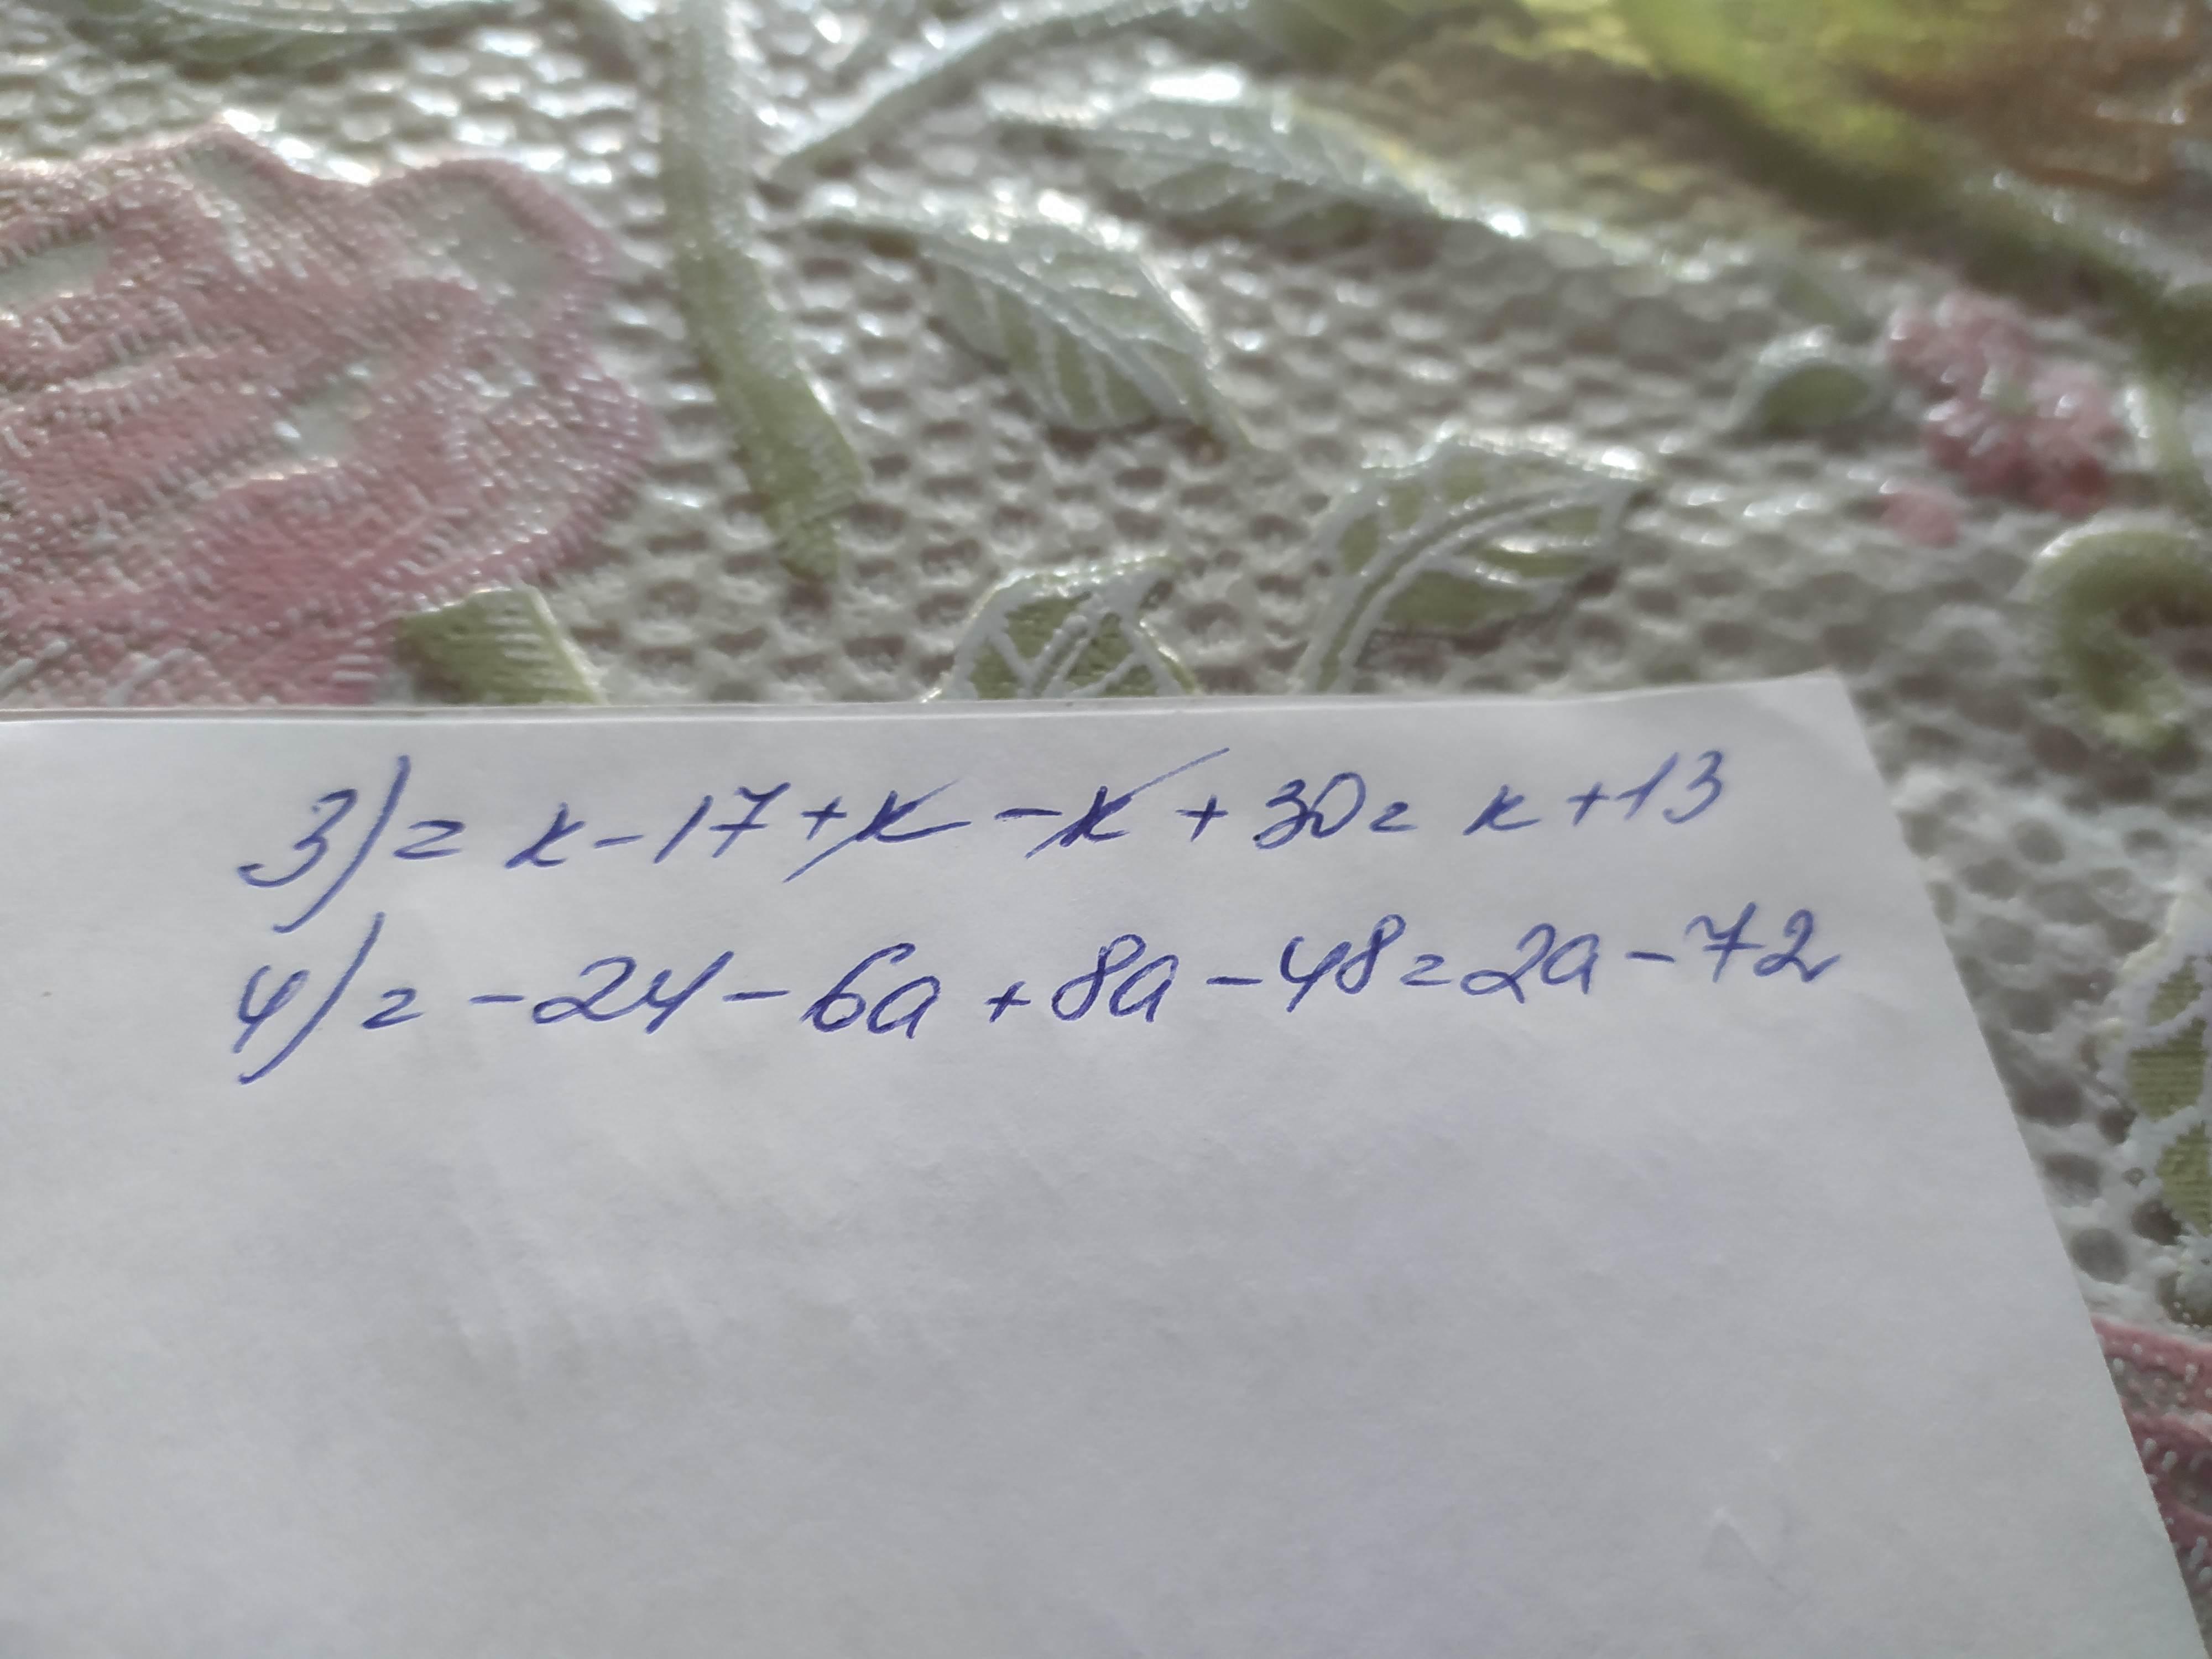 3) = к - 17 + к - к + 30 = к + 13
4) = - 24 - 6a + 8a - 48 = 2a - 72